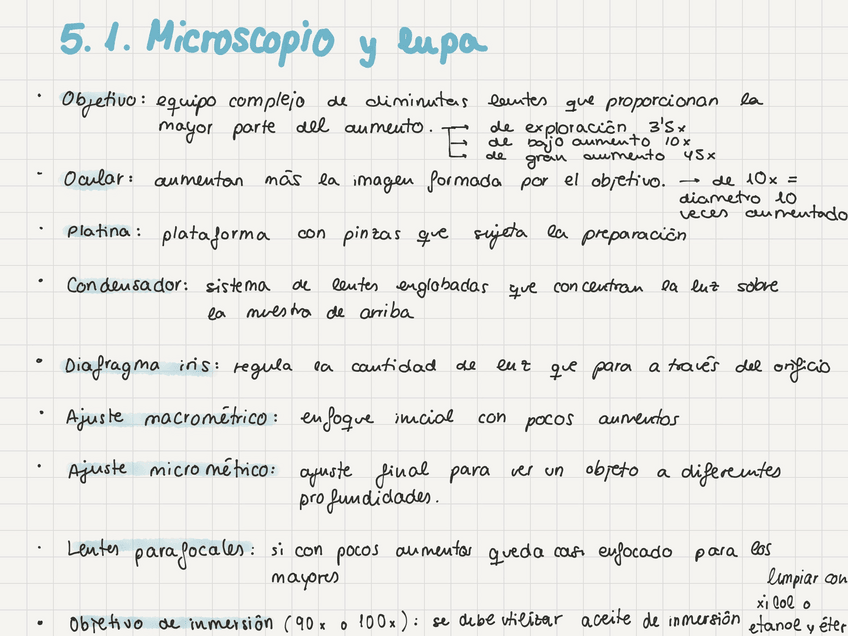 5.1. Microscopio y lupa
· Objetivo: equipo complejo de diminutas lentes que proporcionan la
mayor parte del aumento. → de exploración 3'5x
→ de bajo aumento 10x
→ de gran aumento 45x
· Ocular: aumentan más la imagen formada por el objetivo. → de 10x =
diametro 10
veces aumentado
· Platina: plataforma con pinzas que sujeta la preparación
· Condensador: sistema de lentes englobadas que concentran la luz sobre
la muestra de arriba
· Diafragma iris: regula la cantidad de luz que para a través del orificio
· Ajuste macrométrico: enfoque inicial con pocos aumentos
· Ajuste micrométrico: ajuste final para ver un objeto a diferentes
profundidades.
· Lentes parafocales: si con pocos aumentos queda casi enfocado para los
mayores
limpiar con
xilol o
· Objetivo de inmersión (90x o 100x): se debe utilizar aceite de inmersión etanol y éter